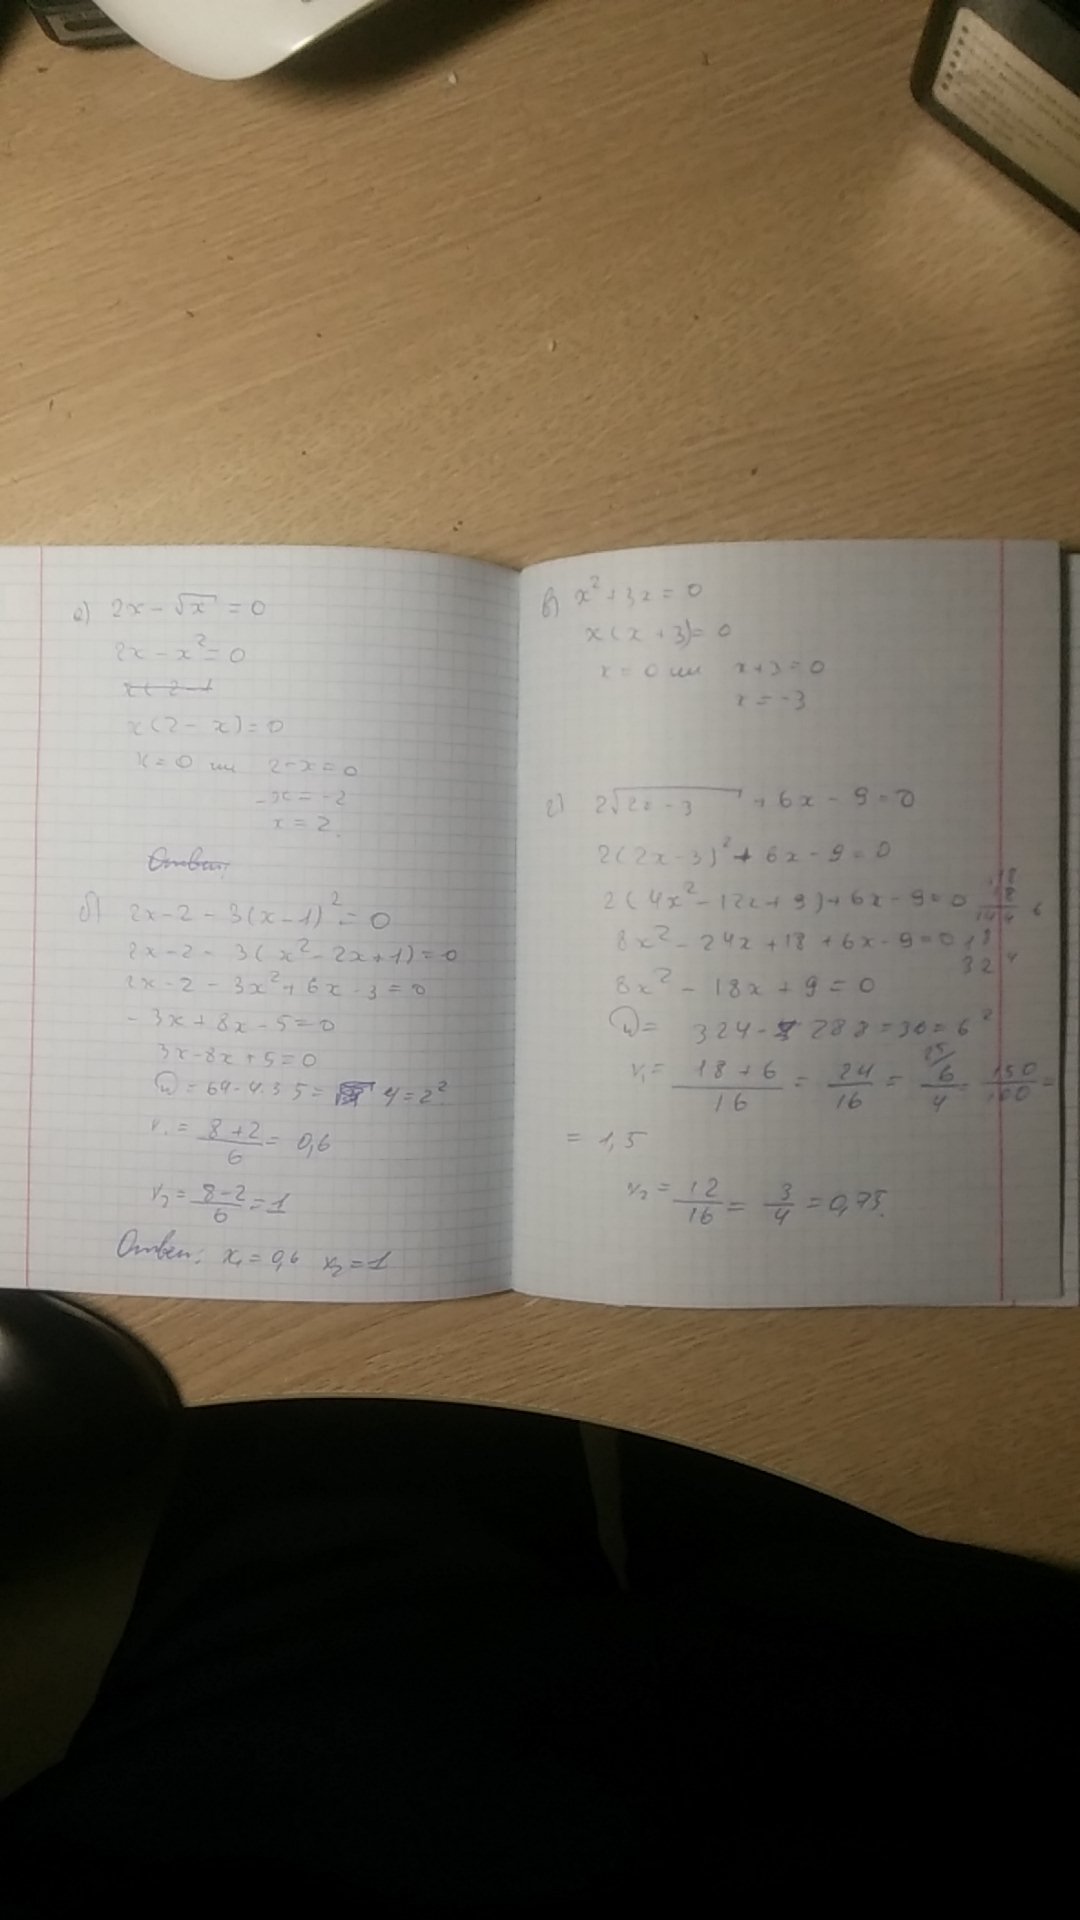 а) 2x - √x = 0
2x - x² = 0
x(2 - x) = 0
x = 0 или 2 - x = 0
-x = -2
x = 2.
Ответ:
б) 2x - 2 - 3(x - 1)² = 0
2x - 2 - 3(x² - 2x + 1) = 0
2x - 2 - 3x² + 6x - 3 = 0
- 3x + 8x - 5 = 0
3x - 8x + 5 = 0
D = 64 - 4·3·5 = 4 = 2²
x₁ = 8 + 2 / 6 = 0,6
x₂ = 8 - 2 / 6 = 1
Ответ: x₁ = 0,6 x₂ = 1
в) x² + 3x = 0
x(x + 3) = 0
x = 0 или x + 3 = 0
x = -3
г) 2√2x - 3 + 6x - 9 = 0
2(2x - 3)² + 6x - 9 = 0
2(4x² - 12x + 9) + 6x - 9 = 0
8x² - 24x + 18 + 6x - 9 = 0
8x² - 18x + 9 = 0
D = 324 - 288 = 36 = 6²
x₁ = 18 + 6 / 16 = 24 / 16 = 6 / 4 = 150 / 100 =
= 1,5
x₂ = 12 / 16 = 3 / 4 = 0,75.